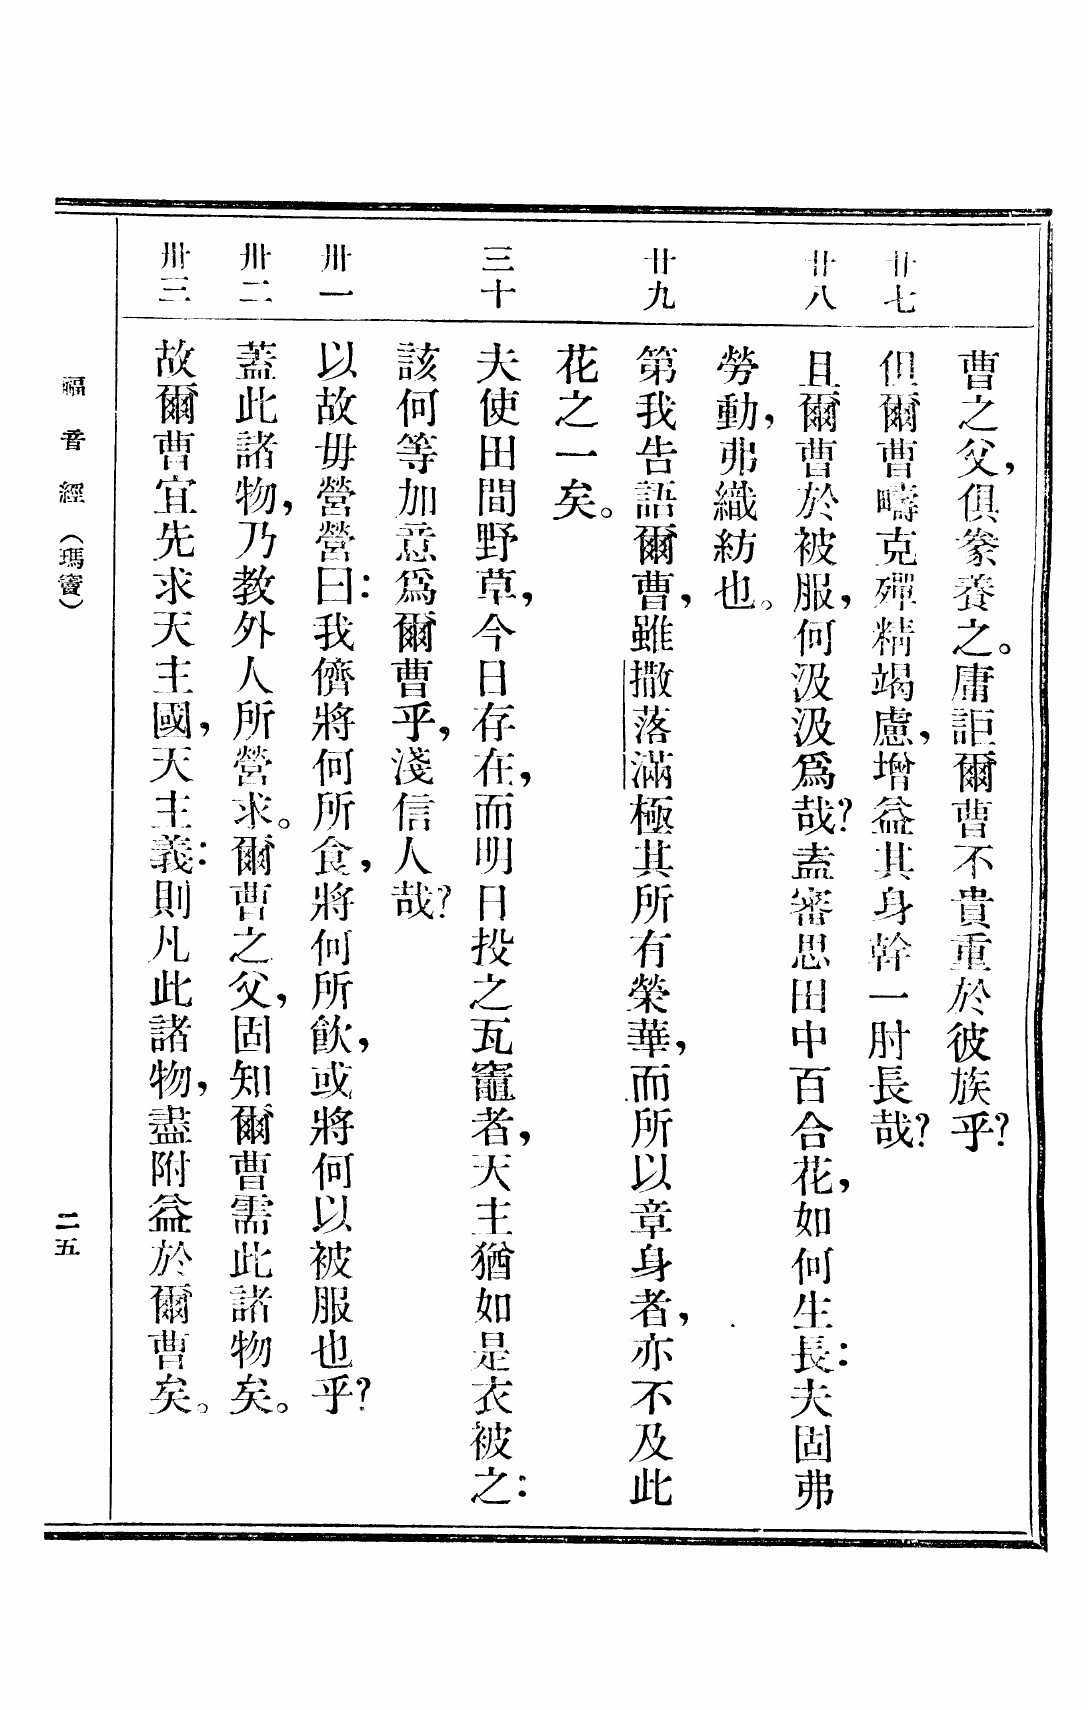 曹之父，俱豢養之。庸詎爾曹不貴重於彼族乎？
廿七
但爾曹疇克殫精竭慮，增益其身幹一肘長哉？
廿八
且爾曹於被服，何汲汲爲哉？盍審思田中百合花，如何生長：夫固弗
勞動，弗織紡也。
廿九
第我告語爾曹，雖撒落滿極其所有榮華，而所以章身者，亦不及此
花之一矣。
三十
夫使田間野草，今日存在，而明日投之瓦竈者，天主猶如是衣被之：
該何等加意爲爾曹乎，淺信人哉？
卅一
以故毋營營曰：我儕將何所食，將何所飲，或將何以被服也乎？
卅二
蓋此諸物，乃教外人所營求。爾曹之父，固知爾曹需此諸物矣。
卅三
故爾曹宜先求天主國，天主義：則凡此諸物，盡附益於爾曹矣。
福音經（瑪竇）
二五